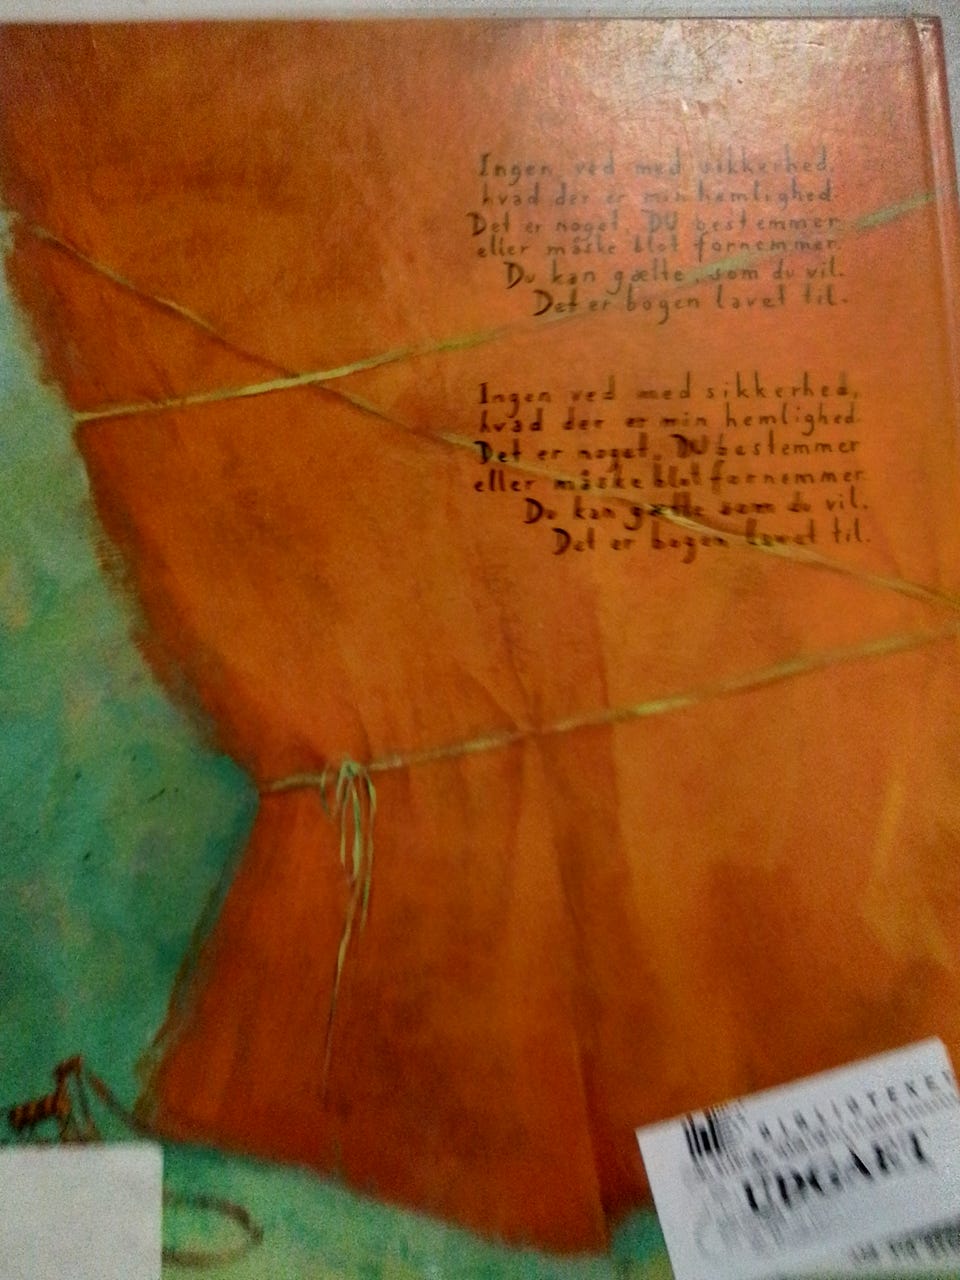 Ingen ved med sikkerhed,
hvad der er min hemlighed.
Det er noget, DU bestemmer
eller måske blot fornemmer.
Du kan gætte, som du vil.
Det er bogen lavet til.
Ingen ved med sikkerhed,
hvad der er min hemlighed
Det er noget, DU bestemmer
eller måske blot fornemmer.
Du kan gætte som du vil.
Det er bogen lavet til.
BIBLIOTEKET
UDGÅET